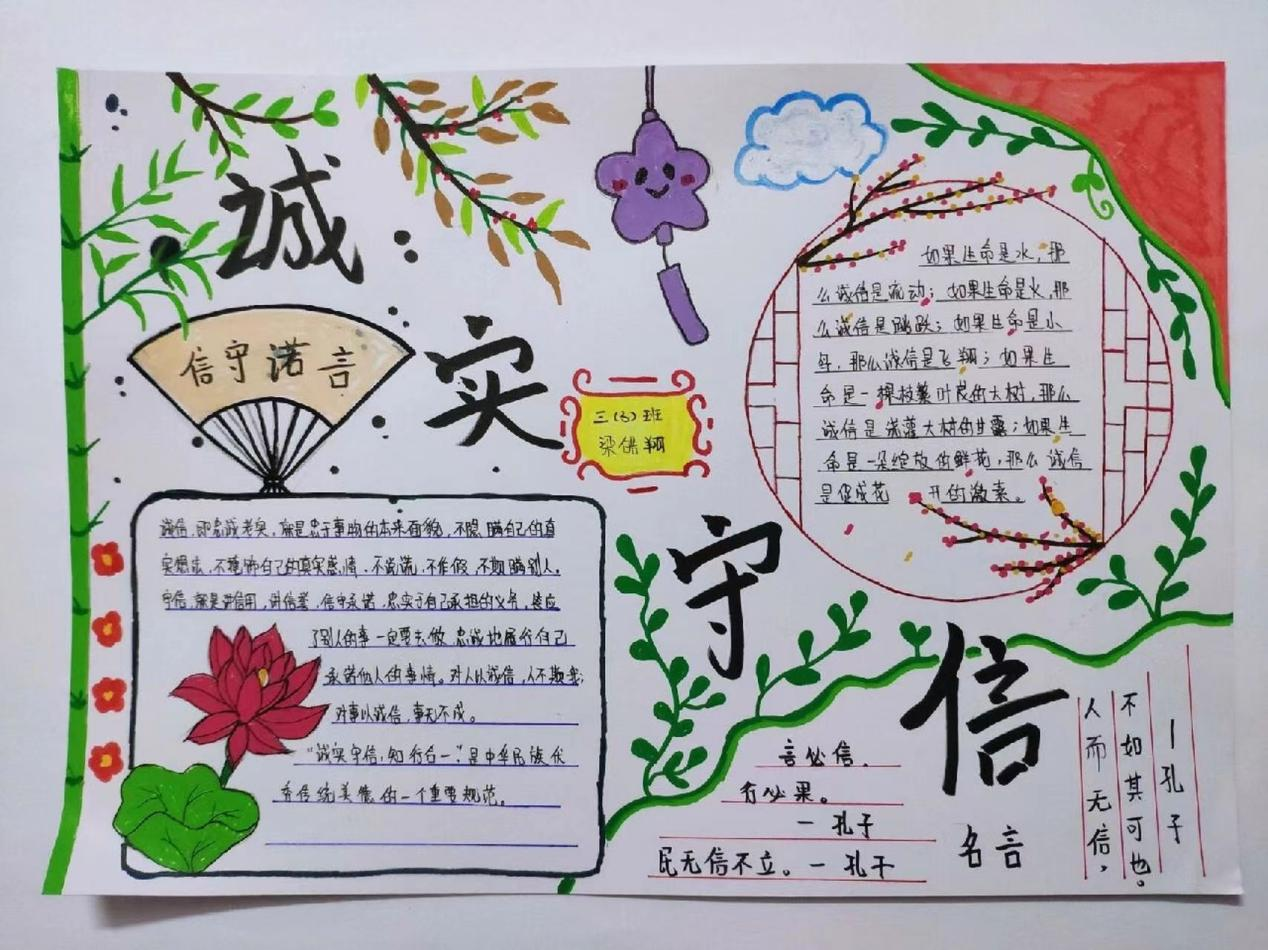 誠
实
守
信
信守诺言
三(3)班
梁佛翔
如果生命是水，那
么诚信是流动；如果生命是火，那
么诚信是跳跃；如果生命是小
鸟，那么诚信是飞翔；如果生
命是一棵枝繁叶茂的大树，那么
诚信是浇灌大树的甘露；如果生
命是一朵绽放的鲜花，那么诚信
是促成花开的激素。
诚信，即忠诚老实，就是忠于事物的本来面貌，不隐瞒自己的真
实想法，不掩饰自己的真实感情，不说谎，不作假，不欺瞒别人。
守信，就是讲信用，讲信誉，信守承诺，忠实于自己承担的义务，答应
了别人的事一定要去做 忠诚地履行自己
承诺他人的事情。对人以诚信，人不欺我；
对事以诚信，事无不成。
"诚实守信，知行合一"是中华民族优
秀传统美德的一个重要规范。
言必信，
行必果。
一孔子
民无信不立。一孔子
名言
人而无信，
不如其可也。
一孔子